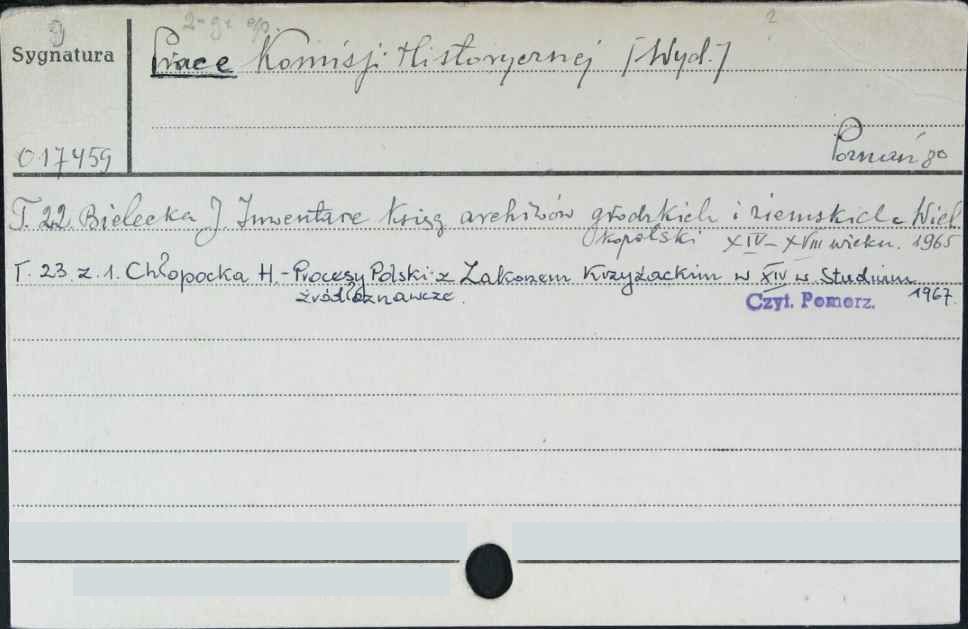 9
2
Sygnatura
Prace Komisji Historycznej [Wyd.]
017459
Poznań 80
T. 22. Bielecka J. Inwentarze ksiąg archiwów grodzkich i ziemskich Wiel
kopolski XIV-XVIII wieku. 1965
T. 23 z. 1. Chłopocka H. - Procesy Polski z Zakonem Krzyżackim w XIV w. Studium
źródłoznawcze. 1967
Czyt. Pomorz.